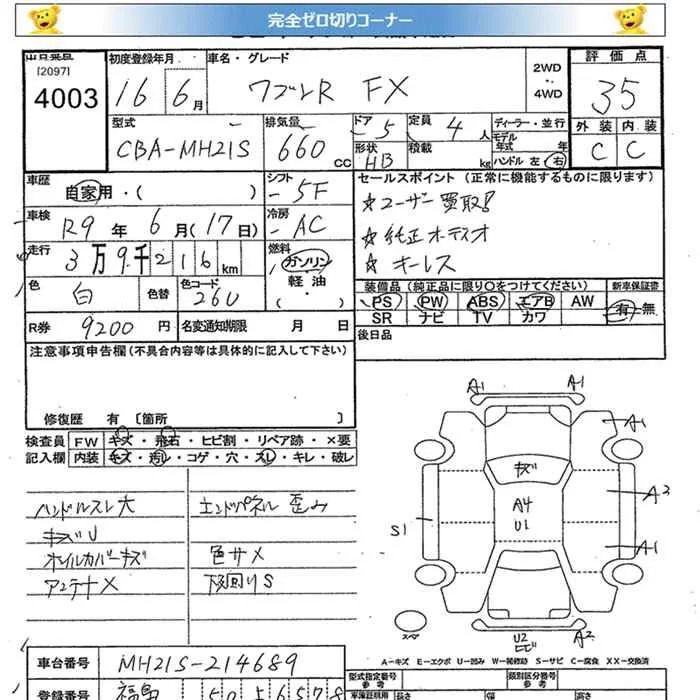 完全ゼロ切りコーナー
[2097]
4003
初度登録年月
16 6月
車名・グレード
ワゴンR FX
2WD
4WD
評価点
35
外装 内装
C C
型式
CBA-MH21S
排気量
660 CC
ドア 5
形状 HB
定員 4 人
積載 kg
ディーラー・並行
モデル年式 年
ハンドル 左 右
車歴
自家用・( )
シフト
5F
車検
R9年 6月(17日)
冷房
AC
走行
3万9千216km
燃料
ガソリン
軽油
・( )
色
白
色替
色コード
26U
R券 9200円
名変通知期限 月 日
セールスポイント (正常に機能するものに限ります)
☆ユーザー買取!
☆純正オーディオ
☆キーレス
装備品 (純正品に限り○をつけてください)
新車保証書
PS PW ABS エアB AW
SR ナビ TV カワ
有・無
後日品
注意事項申告欄(不具合内容等は具体的に記入して下さい)
修復歴 有 〔箇所 〕
検査員 FW キズ・飛石・ヒビ割・リペア跡・×要
記入欄 内装 キズ・汚レ・コゲ・穴・スレ・キレ・破レ
ハンドルスレ大
キズU
ホイルカバーキズ
アンテナX
エンドパネル歪み
色サメ
下回りS
A1 A1
A1
キズ
A4
U1
A2
S1
A1
スペア
U2
ヒビ
A2
A−キズ E−エクボ U−凹み W−補修跡 S−サビ C−腐食 XX−交換済
車台番号 MH21S-214689
登録番号 福島 50 を 6578
型式指定番号
参考
類別区分番号
参考
長さ
幅
高さ